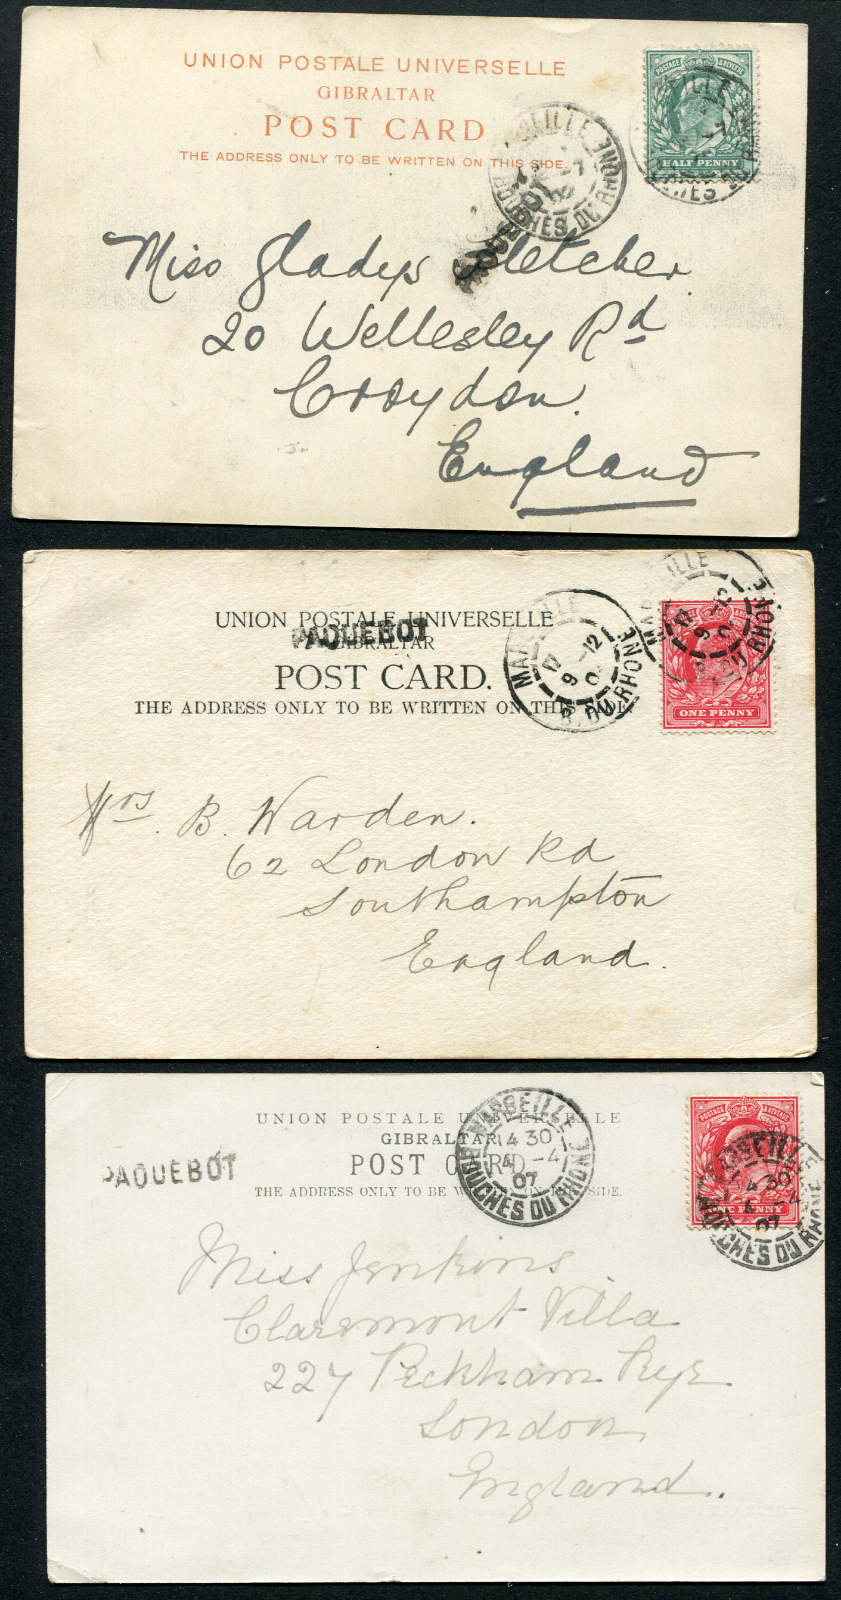 UNION POSTALE UNIVERSELLE
GIBRALTAR
POST CARD
THE ADDRESS ONLY TO BE WRITTEN ON THIS SIDE.
MARSEILLE
BOUCHES DU RHONE
PAQUEBOT
POSTAGE & REVENUE
HALF PENNY
Miss Gladys Fletcher.
20 Wellesley Rd
Croydon.
England
UNION POSTALE UNIVERSELLE
PAQUEBOT
GIBRALTAR
POST CARD.
THE ADDRESS ONLY TO BE WRITTEN ON THIS SIDE
MARSEILLE
B. DU RHONE
MARSEILLE
DU RHONE
ONE PENNY
Mrs. B. Warden.
62 London Rd
Southampton
England.
UNION POSTALE UNIVERSELLE
GIBRALTAR
POST CARD
THE ADDRESS ONLY TO BE WRITTEN ON THIS SIDE.
PAQUEBOT
MARSEILLE
14 30
4 -4
07
BOUCHES DU RHONE
POSTAGE & REVENUE
ONE PENNY
MARSEILLE
14 30
4 -4
07
BOUCHES DU RHONE
Miss Jenkins
Claremont Villa
227 Peckham Rye
London
England.